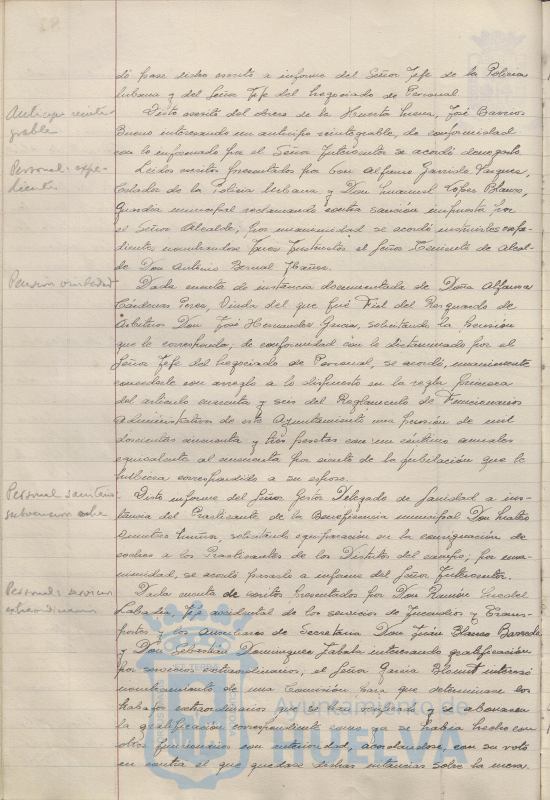 dó pase dicho escrito a informe del Señor Jefe de la Policia
Urbana y del Señor Jefe del Negociado de Personal
Anticipo reinte-
grable
Visto escrito del obrero de la Huerta Mena, José Barrios
Bueno interesando un anticipo reintegrable, de conformidad
con lo informado por el Señor Interventor se acordó denegarlo
Personal: expe-
diente
Leidos escritos presentados por Don Alfonso Garrido Vazquez,
Celador de la Policia Urbana y Don Manuel López Blanco,
Guardia municipal reclamando contra sanción impuesta por
el Señor Alcalde; por unanimidad se acordó instruirles expe-
dientes nombrandose Juez Instructor el Señor Teniente de Alcal-
de Don Antonio Bernal Ibañez.
Pension viudedad
Dada cuenta de instancia documentada de Doña Alfonsa
Cárdenas Perez, Viuda del que fué Fiel del Resguardo de
Arbitrios Don José Hernandez Garcia, solicitando la pensión
que le corresponda; de conformidad con lo dictaminado por el
Señor Jefe del Negociado de Personal, se acordó, unanimemente
concederle con arreglo a lo dispuesto en la regla primera
del articulo cuarenta y seis del Reglamento de Funcionarios
Administrativos de este Ayuntamiento una pensión de mil
doscientas cincuenta y tres pesetas con un centimo anuales
equivalente al cincuenta por ciento de la jubilación que le
hubiera correspondido a su esposo.
Personal sanitario
subvencion coche
Visto informe del Señor Gestor Delegado de Sanidad a ins-
tancia del Practicante de la Beneficencia municipal Don Mateo
solicitando equiparación en la consignación de
coches a los Practicantes de los Distritos del campo; por una-
nimidad, se acordó pasarlo a informe del Señor Interventor.
Personal: servicios
extraordinarios
Dada cuenta de escritos presentados por Don Ramón
Labador Jefe accidental de los servicios de Incendios y Trans-
portes y los Auxiliares de Secretaria Don Juan Blanco Barreda
y Don Sebastian Dominguez Zabala interesando gratificación
por servicios extraordinarios; el Señor Garcia interesó
nombramiento de una Comisión para que determinase los
trabajos extraordinarios que se han realizado y se abonara
la gratificación correspondiente como ya se habia hecho con
otros funcionarios con anterioridad, acordandose, con su voto
en contra el que quedase dichas instancias sobre la mesa.
Ayuntamiento de
HUELVA